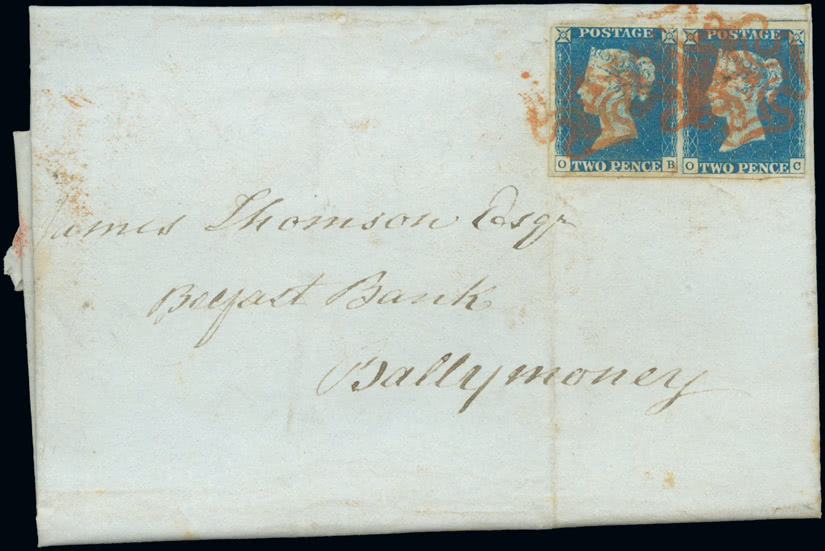 POSTAGE POSTAGE
O B O C
TWO PENCE TWO PENCE
James Thomson Esqr
Belfast Bank
Ballymoney